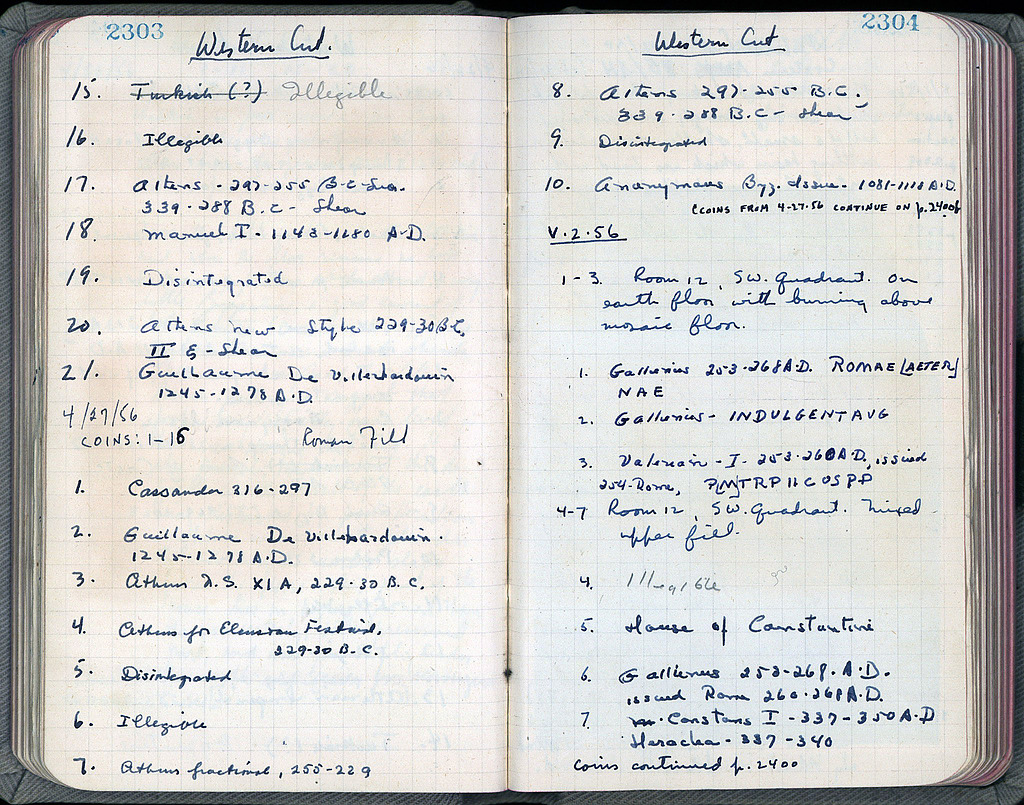 2303
Western Cut.
15. Turkish (?) Illegible
16. Illegible
17. Athens - 297-255 B-C-Svo.
339-288 B.C - Shear
18. Manuel I - 1143-1180 A.D.
19. Disintegrated
20. Athens New Style 229-30 B.C.
II - Shear
21. Guillaume De Villehardouin
1245-1278 A.D.
4/27/56
COINS: 1-16 Roman Fill
1. Cassander 316-297
2. Guillaume De Villehardouin.
1245-1278 A.D.
3. Athens N.S. XI A, 229-30 B.C.
4. Athens for Eleusian Festival,
229-30 B.C.
5. Disintegrated
6. Illegible
7. Athens fractional, 255-229
2304
Western Cut
8. Athens 297-255 B.C.,
339-288 B.C - Shear
9. Disintegrated
10. Anonymous Byz. Issue - 1081-1118 A.D.
(COINS FROM 4-27-56 CONTINUE ON p.2400f
V.2.56
1-3. Room 12, SW. Quadrant. On
earth floor with burning above
mosaic floor.
1. Gallienus 253-268 A.D. ROMAE [AETER]
NAE
2. Gallienus - INDULGENT AVG
3. Valerian - I - 253-260 A.D., issued
254-Rome, P[M]TRP II COS PP
4-7 Room 12, SW. Quadrant. Mixed
upper fill.
4. Illegible
5. House of Constantine
6. Gallienus 253-268. A.D.
issued Rome 260-268 A.D.
7. Constans I - 337-350 A.D
Heraclea - 337-340
Coins continued p. 2400